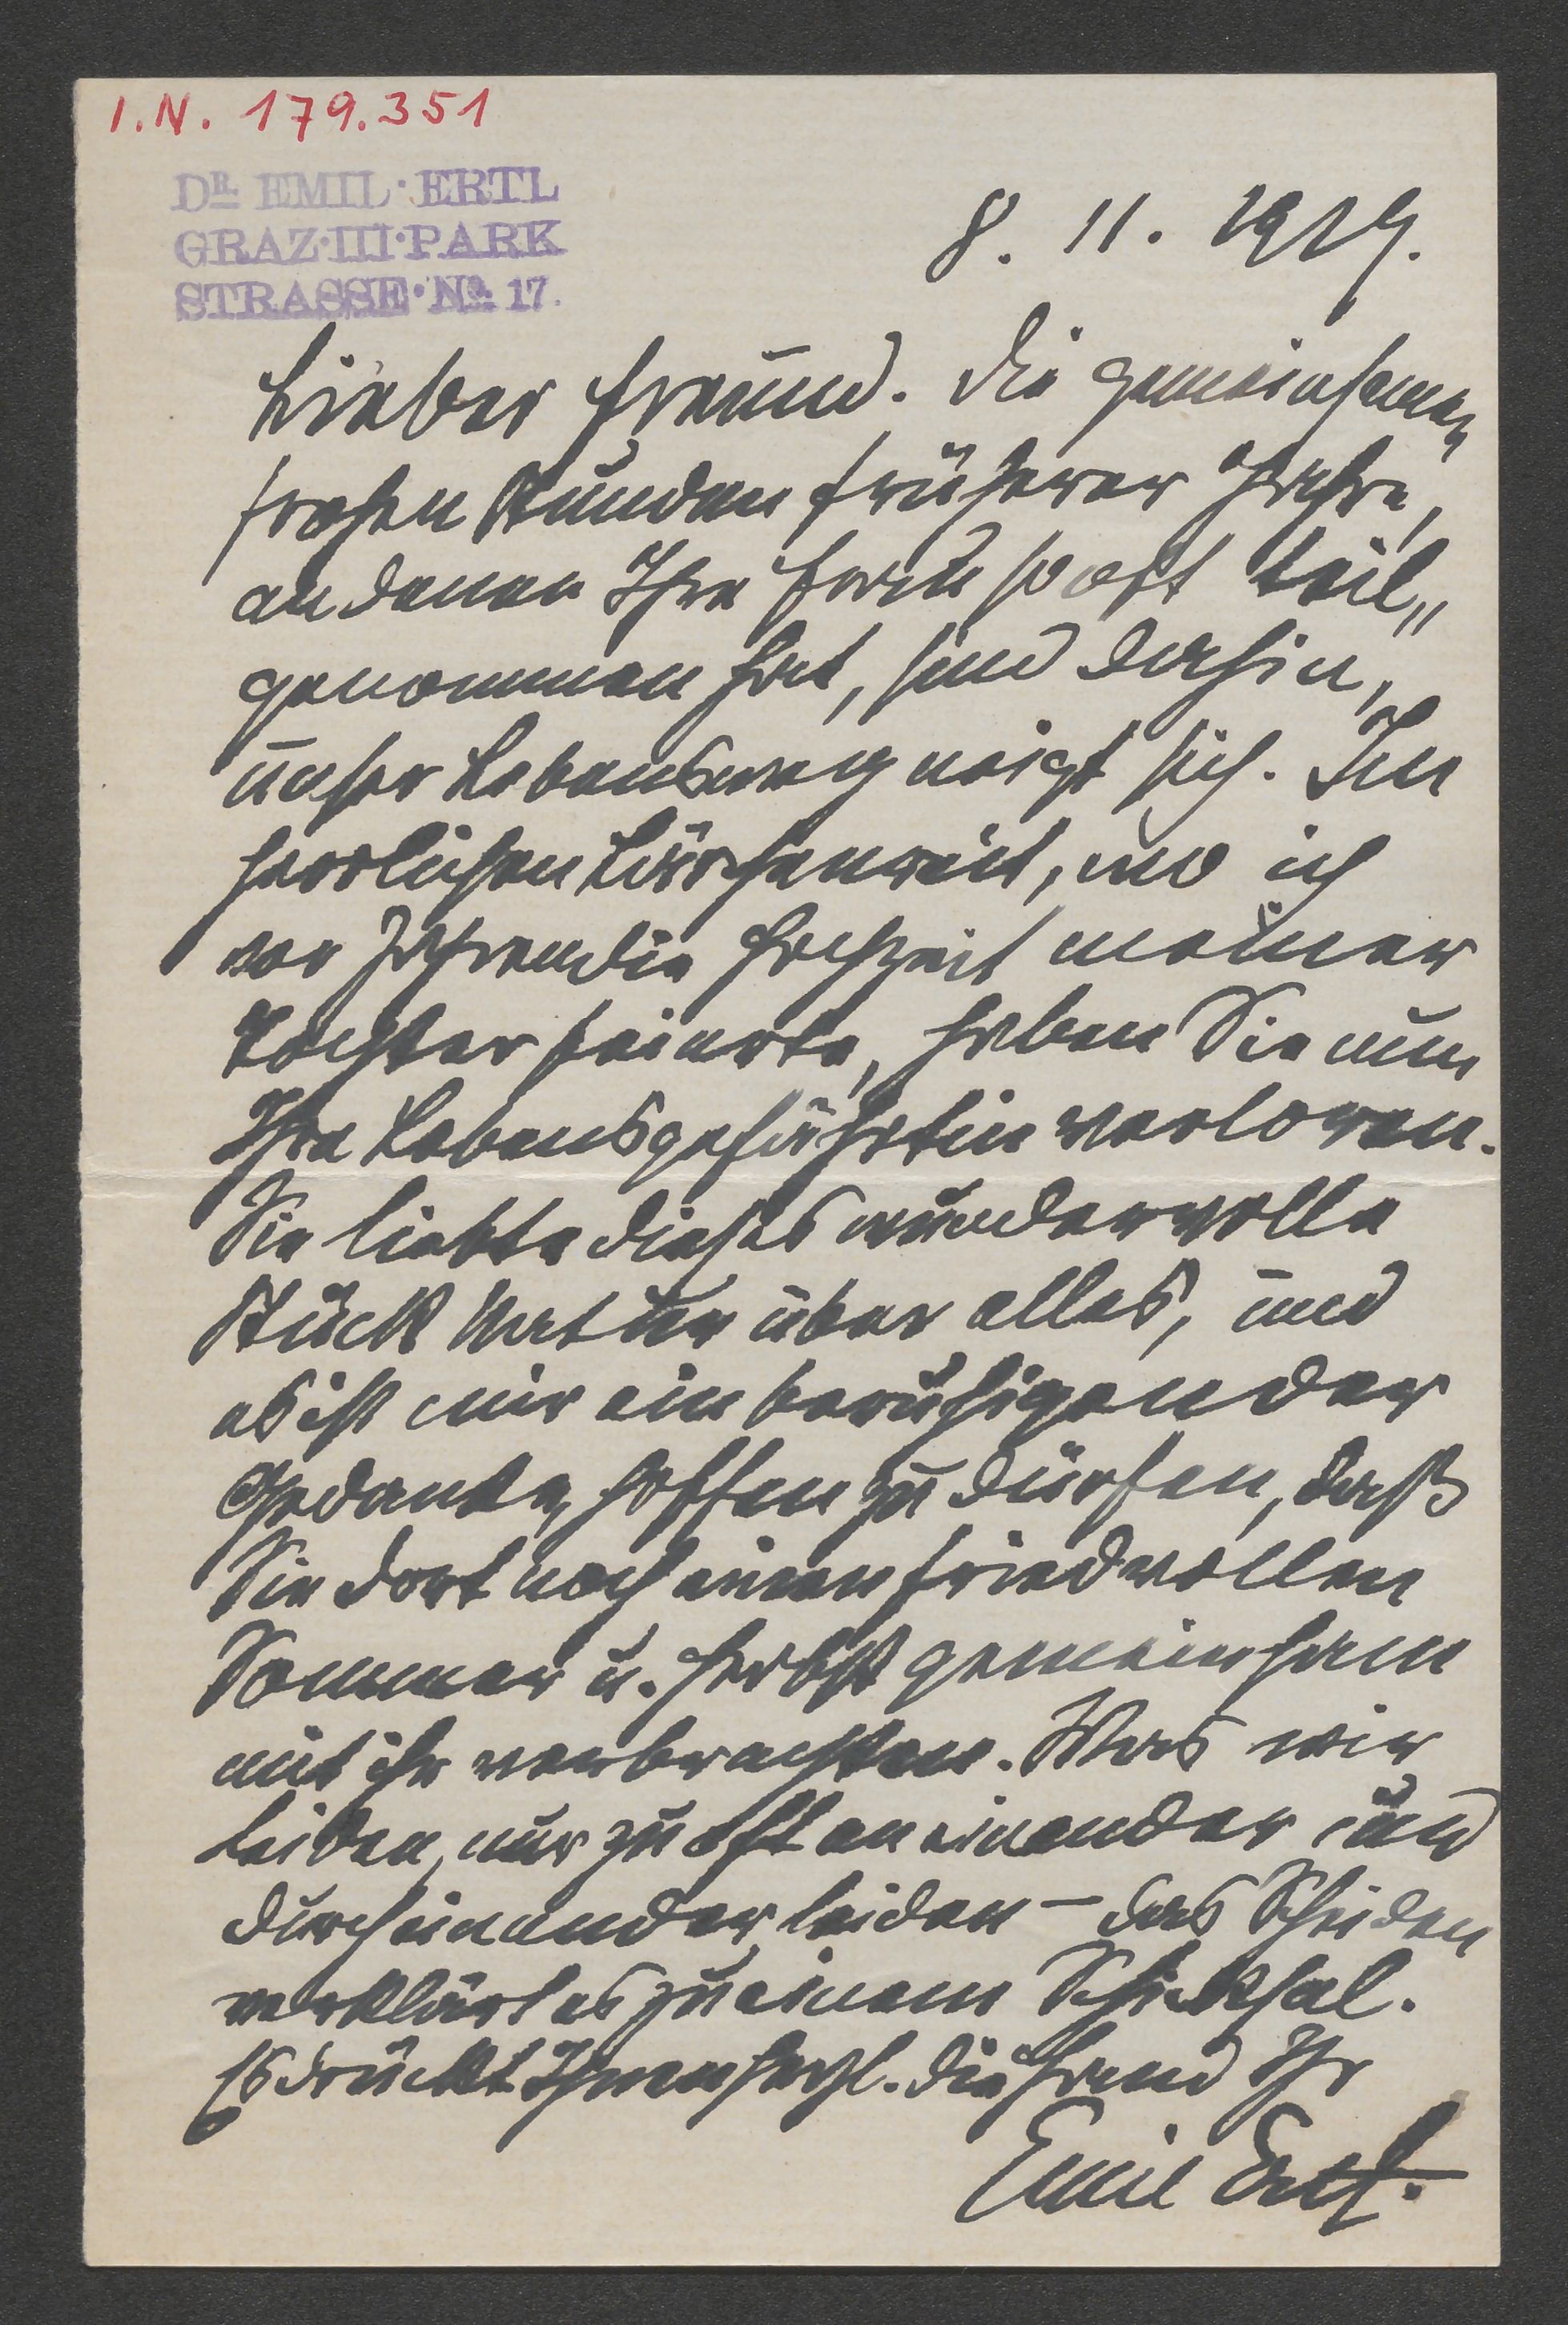 I.N. 179.351
DR. EMIL·ERTL
GRAZ·III·PARK
STRASSE·No. 17.
8. 11. 1919.
Lieber Freund. Die gemeinsamen
frohen Stunden früherer Jahre,
an denen Ihre Frau so oft teil„
genommen hat, sind dahin,
unser Lebensweg neigt sich. Im
herrlichen wo ich
vor Jahren die Hochzeit meiner
Tochter feierte, haben Sie nun
Ihre Lebensgefährtin verloren.
Sie liebte dieses wundervolle
Stück Natur über alles, und
es ist mir ein beruhigender
Gedanke, hoffen zu dürfen, daß
Sie dort noch einen friedvollen
Sommer u. Herbst gemeinsam
mit ihr verbrachten. Was wir
leiden, nur zu oft an einander und
durch einander leiden – das Scheiden
verklärt es zu einem Schicksal.
Es drückt Ihnen herzl. die Hand Ihr
Emil Ertl.